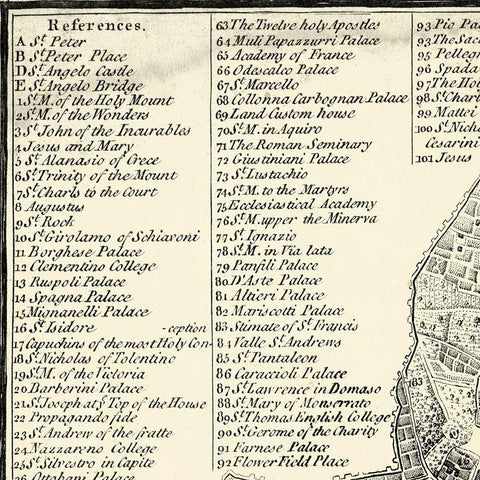 References.
A St. Peter
B St. Peter Place
D St. Angelo Castle
E St. Angelo Bridge
1 St. M. of the Holy Mount
2 St. M. of the Wonders
3 St. John of the Incurables
4 Jesus and Mary
5 St. Alanasio of Crece
6 St. Trinity of the Mount
7 St. Charls to the Court
8 Augustus
9 St. Rock
10 St. Girolamo of Schiavoni
11 Borghese Palace
12 Clementino College
13 Ruspoli Palace
14 Spagna Palace
15 Mignanelli Palace
16 St. Isidore -ception
17 Capuchins of the most Holy Con-
18 St. Nicholas of Tolentino
19 St. M. of the Victoria
20 Barberini Palace
21 St. Joseph at ye Top of the House
22 Propagando fide
23 St. Andrew of the fratte
24 Nazzareno College
25 St. Silvestro in Capite
26 Ottobani Palace
63 The Twelve holy Apostles
64 Muli Papazzurri Palace
65 Academy of France
66 Odescalco Palace
67 St. Marcello
68 Collonna Carbognan Palace
69 Land Custom house
70 St. M. in Aquiro
71 The Roman Seminary
72 Giustiniani Palace
73 St. Eustachio
74 St. M. to the Martyrs
75 Ecclesiastical Academy
76 St. M. upper the Minerva
77 St. Ignazio
78 St. M. in Via lata
79 Panfili Palace
80 D'Aste Palace
81 Altieri Palace
82 Mariscotti Palace
83 Stimate of St. Francis
84 Valle St. Andrews
85 St. Pantaleon
86 Caraccioli Palace
87 St. Lawrence in Domaso
88 St. Mary of Monserrato
89 St. Thomas English College
90 St. Gerome of the Charity
91 Farnese Palace
92 Flower Field Place
93 Pio Pa
93 The Sac
95 Pellegr
96 Spada
97 The Hol
98 St. Charl
99 Mattei
100 St. Nich
Cesarini
101 Jesus
183